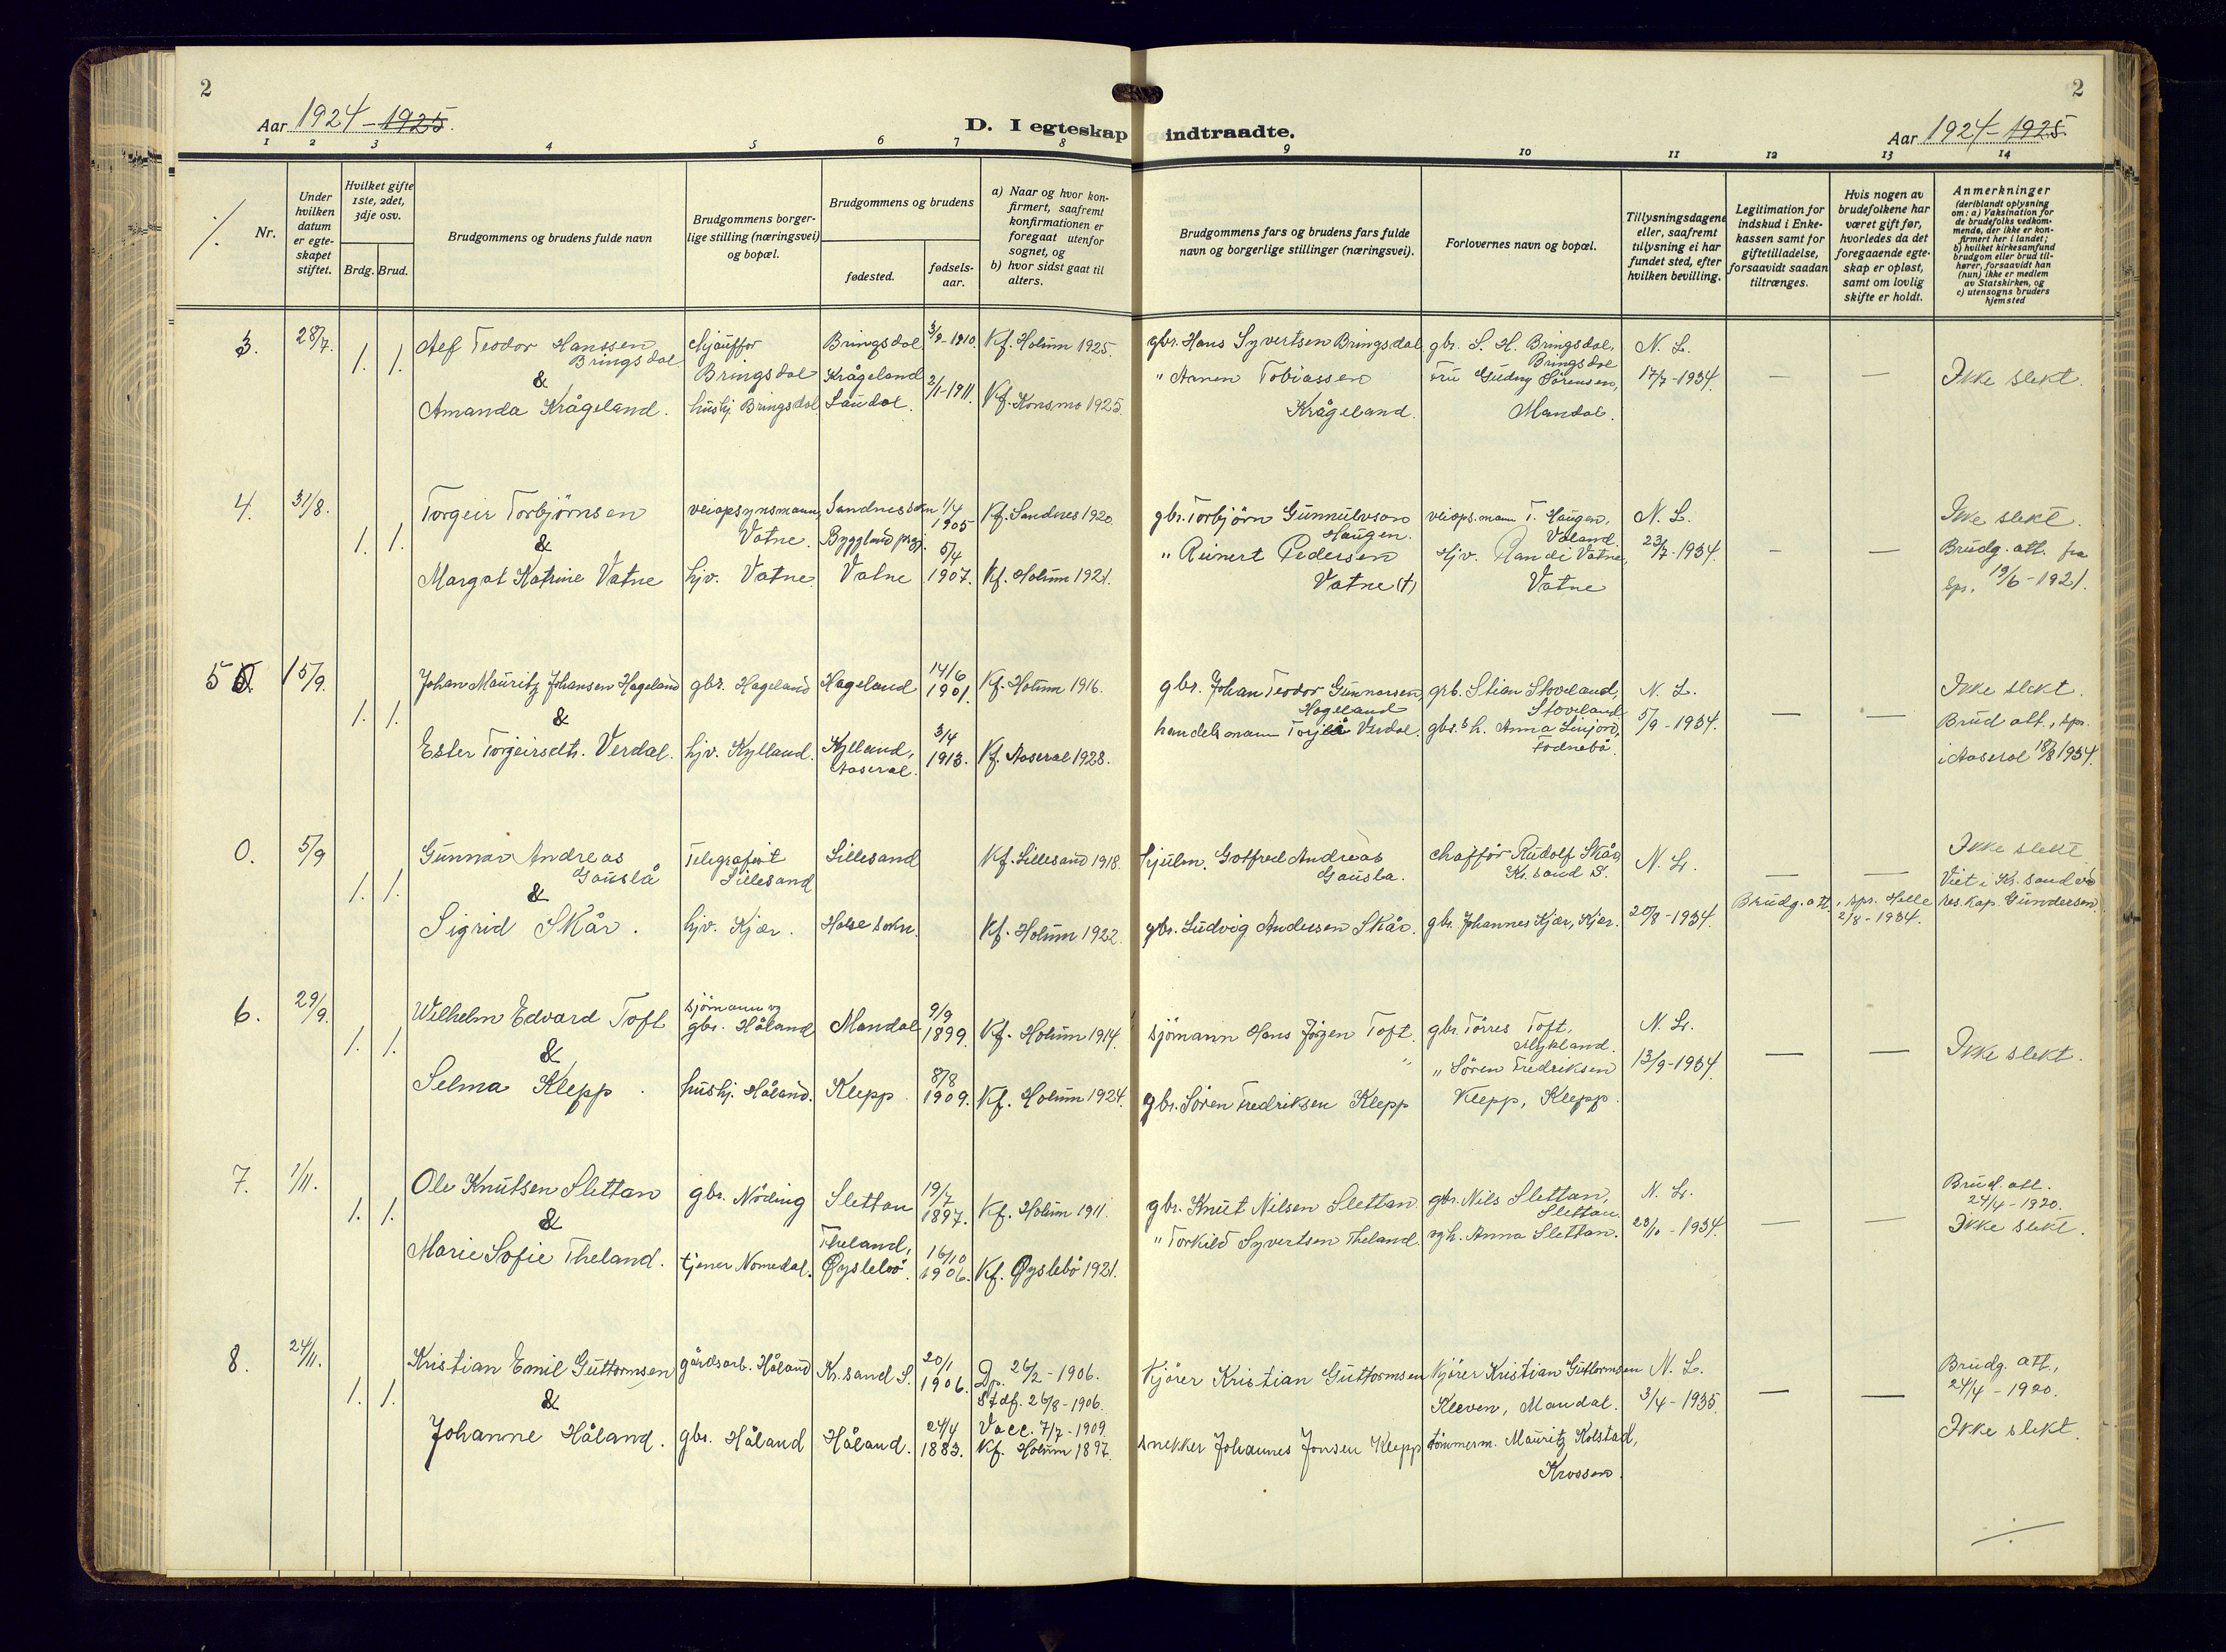 2
Aar 1924-1925.
D. I egteskap indtraadte.
Aar 1924-1925.
2
1 2 3 4 5 6 7 8 9 10 11 12 13 14
Nr.
Under hvilken datum er egteskapet stiftet.
Hvilket gifte 1ste, 2det, 3dje osv.
Brdg. Brud.
Brudgommens og brudens fulde navn
Brudgommens borgerlige stilling (næringsvei) og bopæl.
Brudgommens og brudens
fødested.
fødselsaar.
a) Naar og hvor konfirmert, saafremt konfirmationen er foregaat utenfor sognet, og
b) hvor sidst gaat til alters.
Brudgommens fars og brudens fars fulde navn og borgerlige stillinger (næringsvei).
Forlovernes navn og bopæl.
Tillysningsdagene eller, saafremt tillysning ei har fundet sted, efter hvilken bevilling.
Legitimation for indskud i Enkekassen samt for giftetilladelse, forsaavidt saadan tiltrænges.
Hvis nogen av brudefolkene har været gift før, hvorledes da det foregaaende egteskap er opløst, samt om lovlig skifte er holdt.
Anmerkninger (deriblandt oplysning om: a) Vaksination for de brudefolks vedkommende, der ikke er konfirmert her i landet; b) hvilket kirkesamfund brudgom eller brud tilhører, forsaavidt han (hun) ikke er medlem av Statskirken, og c) utensogns bruders hjemsted
3. 28/7. 1. 1. Alf Teodor Hanssen Bringsdal chjauffør Bringsdal Bringsdal 3/9-1910. Kf. Holum 1925. gbr. Hans Syvertsen Bringsdal gbr. S. H. Bringsdal, Bringsdal N. L.
&
Amanda Krågeland. hushj. Bringsdal Krågeland Laudal. 2/1-1911. Kf. Konsmo 1925. " Aanen Tobiassen Krågeland. Fru Gudny Sörensen, Mandal. 17/7-1934. — — Ikke slekt.
4. 31/8. 1. 1. Torgeir Torbjörnsen veiopsynsmann, Vatne. Sandnes sokn Byggland prgj. 1/4 1905 Kf. Sandnes 1920. gbr. Torbjörn Gunnulvson Haugen. veiops.mann T. Haugen, Valand. N. L. Ikke slekt.
&
Margot Katrine Vatne hjv. Vatne Vatne 5/4 1907. Kf. Holum 1921. " Reinert Pedersen Vatne (†) Hjv. Randi Vatne, Vatne 23/7-1934. — — Brudg. att. fra sps. 19/6-1921.
5 15/9. 1. 1. Johan Mauritz Johansen Hageland gbr. Hageland Hageland 14/6 1901. Kf. Holum 1916. gbr. Johan Teodor Gunnarsen, Hageland grb. Stian Stoveland, Stoveland N. L. Ikke slekt.
&
Ester Torgeirsdtr. Verdal. hjv. Kylland. Kylland, Aaseral. 3/4 1913. Kf. Aaseral 1928. handelsmann Verdal. gbr.s h. Anna Fodnebö. 5/9-1934. — — Brud att., sp. i Aaseral 18/8 1934.
0. 5/9 1. 1. Gunnar Andreas Gauslå Telegrafist Lillesand Lillesand Kf. Lillesand 1918. hjulm. Gotfred Andreas Gausla. chafför Rudolf Skår, Kr.sand S. N. L. — — Ikke slekt
&
Sigrid Skår. hjv. Kjær. Halse sokn. Kf. Holum 1922. gbr. Ludvig Anderssen Skår. gbr. Johannes Kjær, Kjær. 20/8-1934. Brudg. att., spr. Helle 2/8-1934. Viet i Kr.sand ved res. kap. Gundersen.
6. 29/9. 1. 1. Wilhelm Edvard Toft sjömann og gbr. Håland Mandal 9/9 1899. Kf. Holum 1914. sjömann Hans Jörgen Toft. gbr. Törres Toft, Mykland. N. L.
&
Selma Klepp. hushj. Håland. Klepp. 8/8 1909. Kf. Holum 1924. gbr. Sören Fredriksen Klepp " Sören Fredriksen Klepp, Klepp. 13/9-1934. — — Ikke slekt.
7. 1/11. 1. 1. Ole Knutsen Slettan gbr. Nöding Slettan 19/7 1897. Kf. Holum 1911. gbr. Knut Nilsen Slettan. gbr. Nils Slettan, Slettan. N. L. Brud. att. 24/4-1920.
&
Marie Sofie Theland. tjener Nomedal. Theland, Øyslebö. 16/10 1906. Kf. Øyslebö 1921. " Torkild Syvertsen Theland. Anna Slettan. 23/10-1934. — — Ikke slekt.
8. 24/11. 1. 1. Kristian Emil Guttormsen gårdsarb. Håland Kr.sand S. 20/1 1906. Dp. 26/2-1906. Stdf. 26/8-1906. Vacc. 7/7-1909. Kjörer Kristian Guttormsen Kjörer Kristian Guttormsen Kleven, Mandal. N. L. 3/4-1935. — — Brudg. att., 24/4-1920.
&
Johanne Håland. gbr. Håland Håland. 24/4 1883. Kf. Holum 1897. snekker Johannes Jonsen Klepp tömmerm. Mauritz Kolstad, Krossen. Ikke slekt.